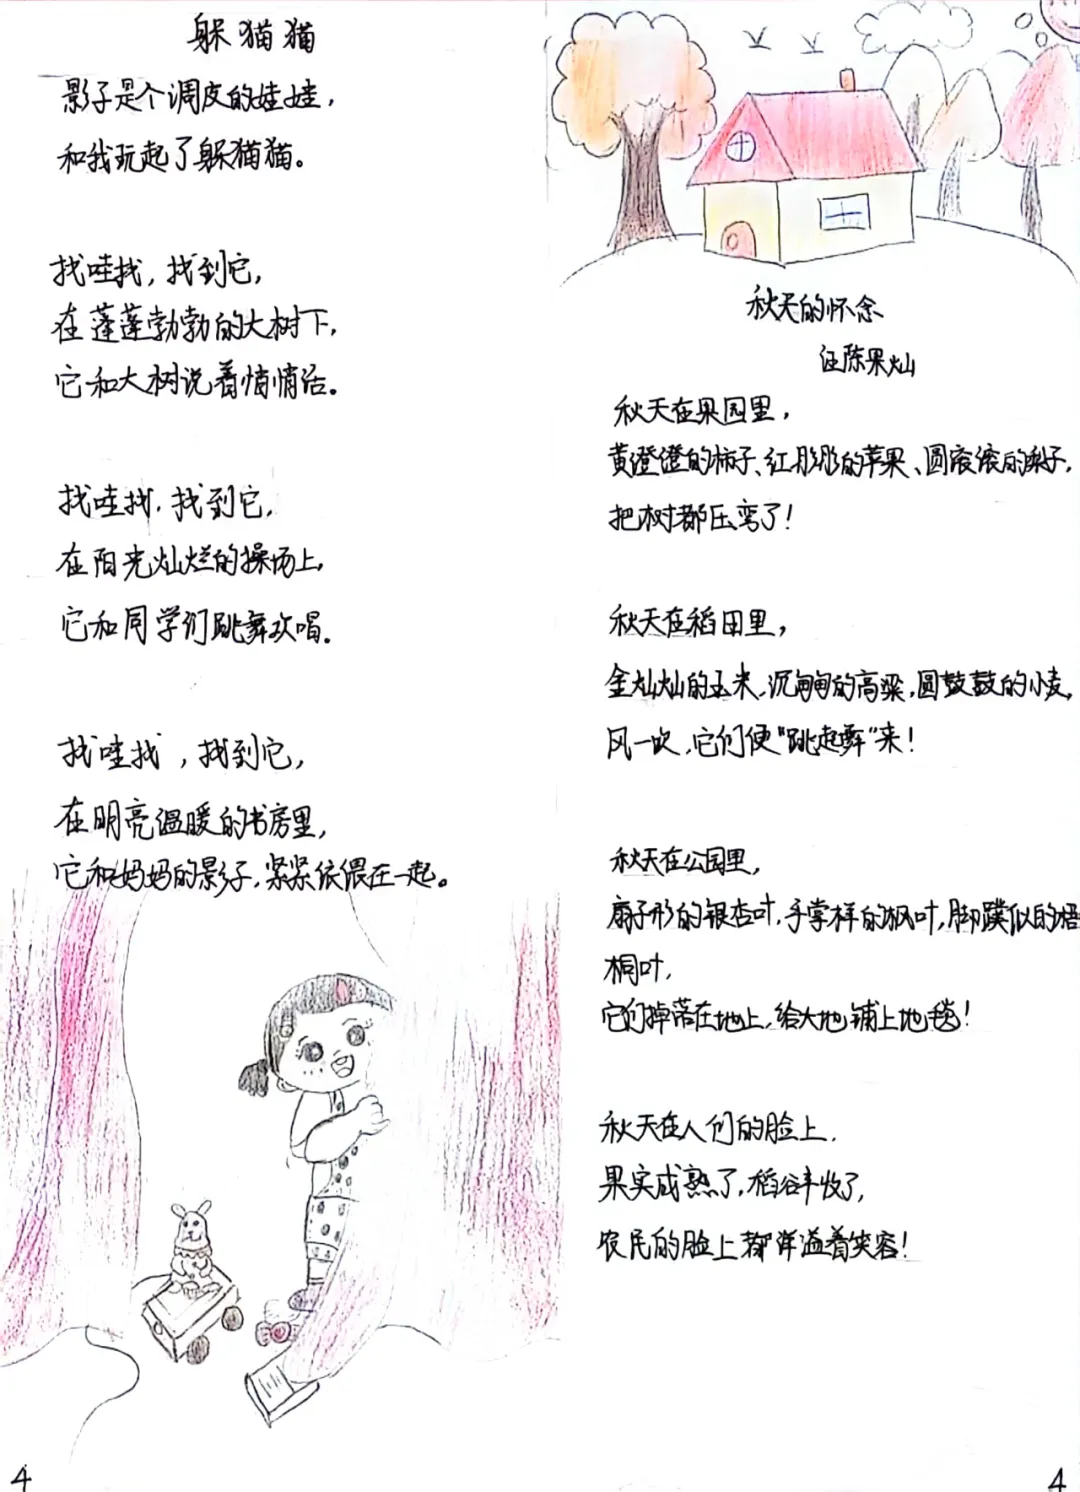 躲猫猫
影子是个调皮的娃娃，
和我玩起了躲猫猫。
找哇找，找到它，
在蓬蓬勃勃的大树下，
它和大树说着悄悄话。
找哇找，找到它，
在阳光灿烂的操场上，
它和同学们跳舞欢唱。
找哇找，找到它，
在明亮温暖的书房里，
它和妈妈的影子，紧紧依偎在一起。
4
秋天的怀念
汪陈果灿
秋天在果园里，
黄澄澄的柿子、红彤彤的苹果、圆滚滚的梨子，
把树都压弯了！
秋天在稻田里，
金灿灿的玉米，沉甸甸的高粱，圆鼓鼓的小麦，
风一吹，它们便“跳起舞”来！
秋天在公园里，
扇子形的银杏叶，手掌样的枫叶，脚蹼似的梧
桐叶，
它们掉落在地上，给大地铺上地毯！
秋天在人们的脸上，
果实成熟了，稻谷丰收了，
农民的脸上都洋溢着笑容！
4